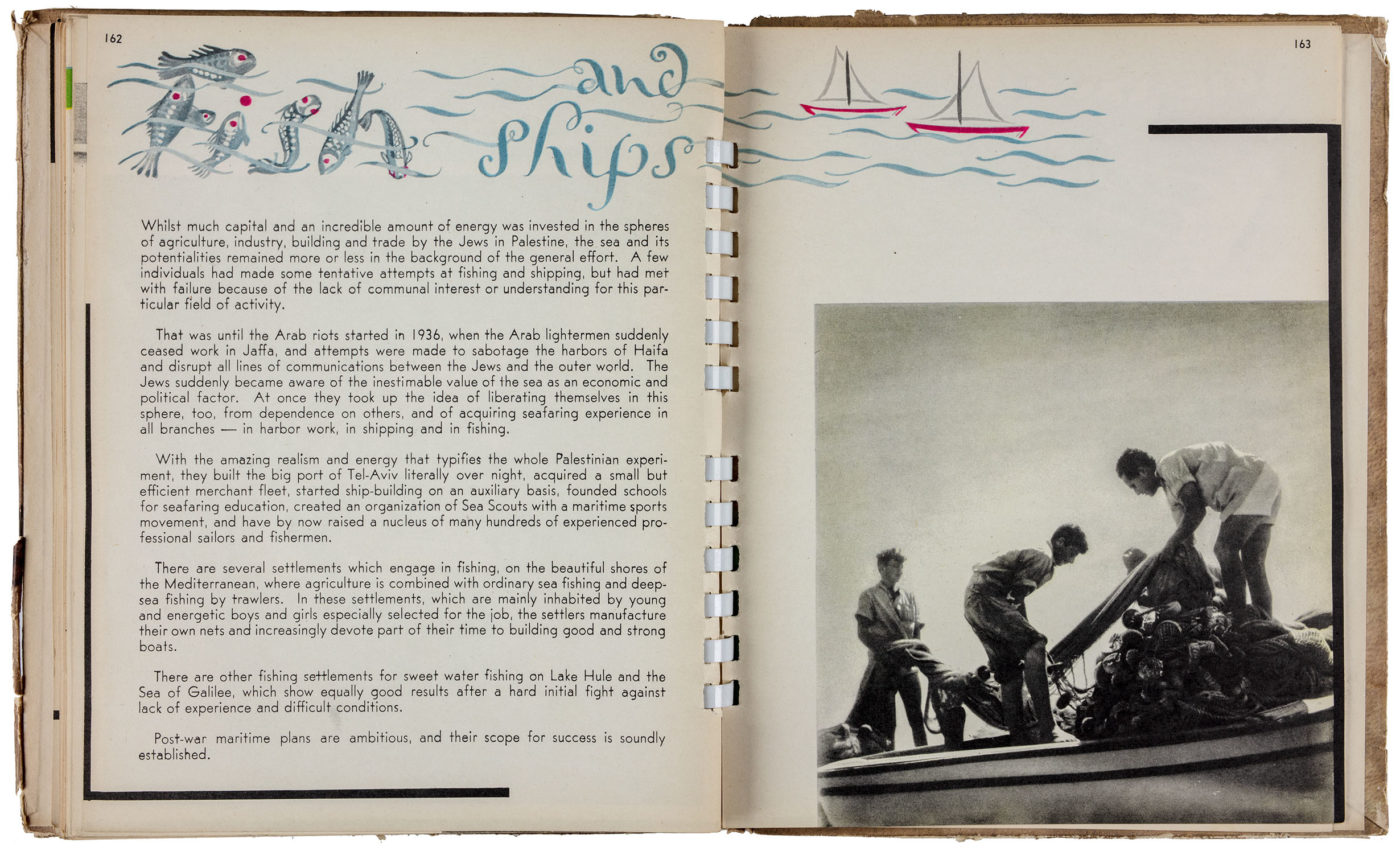 162
Fish and
ships
Whilst much capital and an incredible amount of energy was invested in the spheres
of agriculture, industry, building and trade by the Jews in Palestine, the sea and its
potentialities remained more or less in the background of the general effort. A few
individuals had made some tentative attempts at fishing and shipping, but had met
with failure because of the lack of communal interest or understanding for this par-
ticular field of activity.
That was until the Arab riots started in 1936, when the Arab lightermen suddenly
ceased work in Jaffa, and attempts were made to sabotage the harbors of Haifa
and disrupt all lines of communications between the Jews and the outer world. The
Jews suddenly became aware of the inestimable value of the sea as an economic and
political factor. At once they took up the idea of liberating themselves in this
sphere, too, from dependence on others, and of acquiring seafaring experience in
all branches — in harbor work, in shipping and in fishing.
With the amazing realism and energy that typifies the whole Palestinian experi-
ment, they built the big port of Tel-Aviv literally over night, acquired a small but
efficient merchant fleet, started ship-building on an auxiliary basis, founded schools
for seafaring education, created an organization of Sea Scouts with a maritime sports
movement, and have by now raised a nucleus of many hundreds of experienced pro-
fessional sailors and fishermen.
There are several settlements which engage in fishing, on the beautiful shores of
the Mediterranean, where agriculture is combined with ordinary sea fishing and deep-
sea fishing by trawlers. In these settlements, which are mainly inhabited by young
and energetic boys and girls especially selected for the job, the settlers manufacture
their own nets and increasingly devote part of their time to building good and strong
boats.
There are other fishing settlements for sweet water fishing on Lake Hule and the
Sea of Galilee, which show equally good results after a hard initial fight against
lack of experience and difficult conditions.
Post-war maritime plans are ambitious, and their scope for success is soundly
established.
163